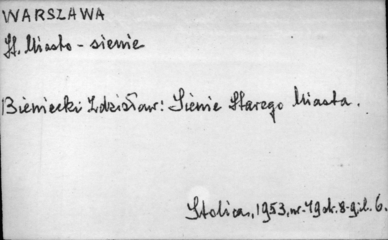 WARSZAWA
St. Miasto - sienie
Bieniecki Zdzisław: Sienie Starego Miasta.
Stolica, 1953, nr. 19 str. 8-9, il. 6.